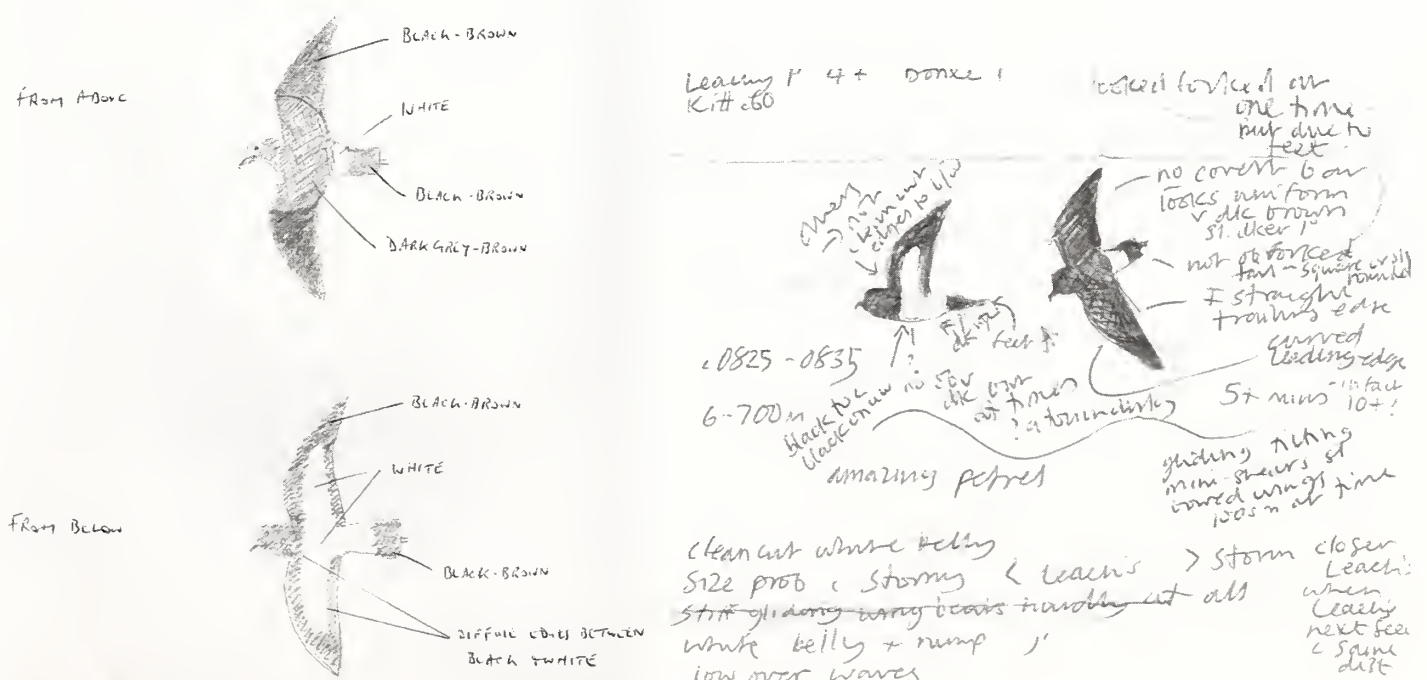 FROM ABOVE
BLACK-BROWN
WHITE
BLACK-BROWN
DARK GREY-BROWN
FROM BELOW
BLACK-BROWN
WHITE
BLACK-BROWN
DIFFUSE EDGES BETWEEN
BLACK + WHITE
Leachs P 4+
Kitt c60
looked forked at
one time
but due to
feet
no covert bar
looks uniform
v dk brown
sl. dker
not forked
tail - square or sl
rounded
± straight
trailing edge
curved
leading edge
not
clean cut
edges to u/w
feet
c.0825-0835
6-700m
black
dk
at times
5+ mins - in fact
10+!
amazing petrel
gliding tilting
mini-shears sl
bowed wings
100s m at time
clean cut white belly
Size prob c Stormy < Leach's > Storm closer
Stiff gliding wing beats hardly at all
white belly + rump
low over waves
Leach's
when
Leach's
next seen
c same
dist